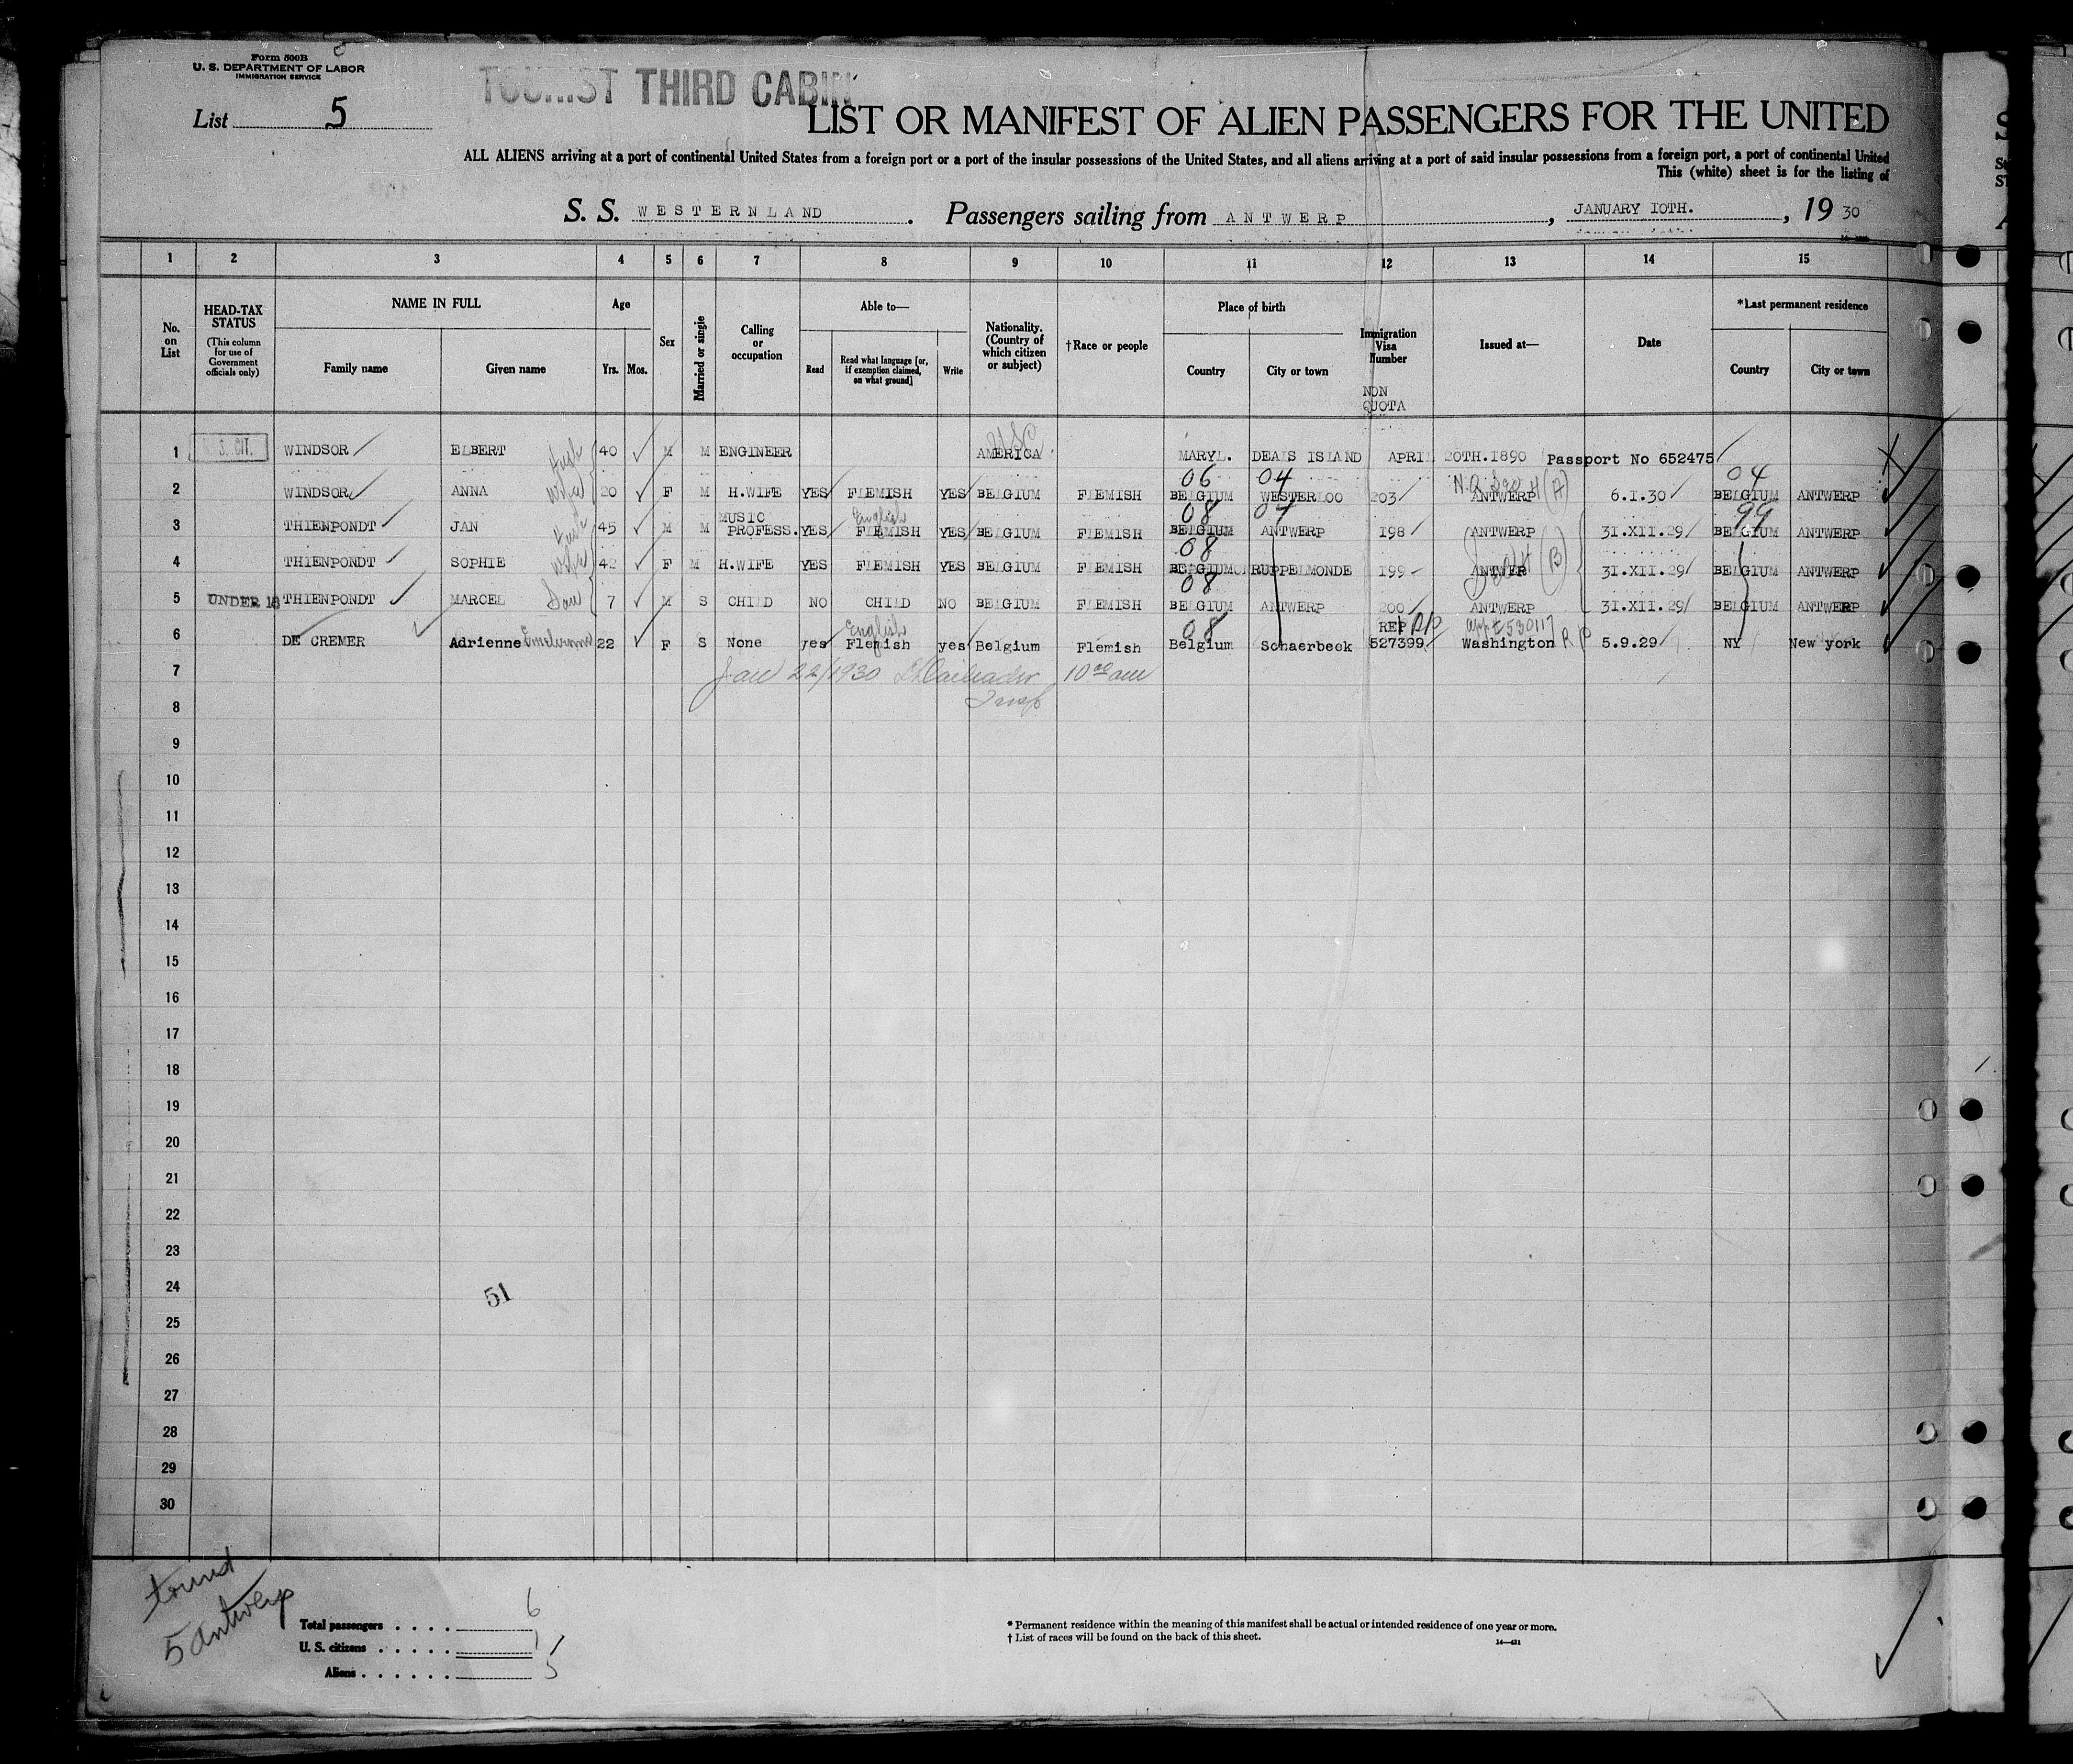 Form 500B
U. S. DEPARTMENT OF LABOR
IMMIGRATION SERVICE
TOURIST THIRD CABIN
List 5
LIST OR MANIFEST OF ALIEN PASSENGERS FOR THE UNITED
ALL ALIENS arriving at a port of continental United States from a foreign port or a port of the insular possessions of the United States, and all aliens arriving at a port of said insular possessions from a foreign port, a port of continental United
This (white) sheet is for the listing of
S. S. WESTERNLAND. Passengers sailing from ANTWERP, JANUARY IOTH., 19 30
1 2 3 4 5 6 7 8 9 10 11 12 13 14 15
No. on List
HEAD-TAX STATUS (This column for use of Government officials only)
NAME IN FULL
Family name Given name
Age
Yrs. Mos.
Sex
Married or single
Calling or occupation
Able to—
Read Read what language [or, if exemption claimed, on what ground] Write
Nationality. (Country of which citizen or subject)
†Race or people
Place of birth
Country City or town
Immigration Visa Number
NON QUOTA
Issued at—
Date
*Last permanent residence
Country City or town
USC
1 S. CIT. WINDSOR ELBERT Husb 40 M M ENGINEER AMERICA MARYL. DEALS ISLAND APRIL 20TH.1890 Passport No 652475
06 04 04
2 WINDSOR ANNA Wife 20 F M H.WIFE YES FLEMISH YES BELGIUM FLEMISH BELGIUM WESTERLOO 203 ANTWERP (A) 6.I.30 BELGIUM ANTWERP
MUSIC English 08 04 99
3 THIENPONDT JAN Husb 45 M M PROFESS. YES FLEMISH YES BELGIUM FLEMISH BELGIUM ANTWERP 198 ANTWERP 31.XII.29 BELGIUM ANTWERP
08
4 THIENPONDT SOPHIE Wife 42 F M H.WIFE YES FLEMISH YES BELGIUM FLEMISH BELGIUM RUPPELMONDE 199 ANTWER (B) 31.XII.29 BELGIUM ANTWERP
08
5 UNDER 16 THIENPONDT MARCEL Son 7 M S CHILD NO CHILD NO BELGIUM FLEMISH BELGIUM ANTWERP 200 ANTWERP 31.XII.29 BELGIUM ANTWERP
English 08 REP R/P 530117
6 DE CREMER Adrienne 22 F S None yes Flemish yes Belgium Flemish Belgium Schaerbeek 527399 Washington R/P 5.9.29 NY New york
7 Jan 22/1930 10 00 am
8 Insp
9
10
11
12
13
14
15
16
17
18
19
20
21
22
23
24
51
25
26
27
28
29
30
5 Antwerp
Total passengers . . . . 6
U. S. citizens . . . . . 1
Aliens . . . . . . 5
* Permanent residence within the meaning of this manifest shall be actual or intended residence of one year or more.
† List of races will be found on the back of this sheet.